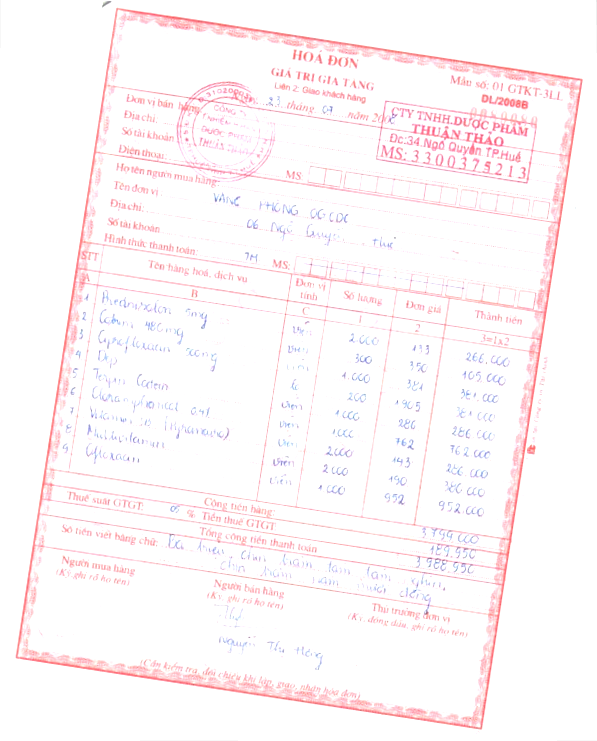 HOÁ ĐƠN
GIÁ TRỊ GIA TĂNG
Liên 2: Giao khách hàng
Mẫu số: 01 GTKT-3LL
DL/2008B
0080080
23 tháng 07 năm 200
Đơn vị bán hàng
Địa chỉ:
Số tài khoản:
Điện thoại: MS
CÔNG TY
DƯỢC PHẨM
THUẬN THẢO
CTY TNHH.DƯỢC PHẨM
THUẬN THẢO
Đc:34 Ngô Quyền TP.Huế
MS: 3300375213
Họ tên người mua hàng:
Tên đơn vị: VĂNG PHÒNG OGCDC
Địa chỉ: 06 Ngô Quyền Huế
Số tài khoản:
Hình thức thanh toán: TM MS:
STT Tên hàng hoá, dịch vụ Đơn vị tính Số lượng Đơn giá Thành tiền
A B C 1 2 3=1x2
1 Prednisolon 5mg viên 2.000 133 266.000
2 Cotrim 480mg viên 300 350 105.000
3 Ciprofloxacin 500mg viên 1.000 381 381.000
4 Dep lo 200 1905 381.000
5 Terpin Codein viên 1000 286 286.000
6 Cloramphenicol 0,4% viên 1000 762 762.000
7 Vitamin viên 2000 143 286.000
8 Multivitamin viên 2000 190 380.000
9 Ofloxacin viên 1000 952 952.000
Cộng tiền hàng: 3.799.000
Thuế suất GTGT: 05 % Tiền thuế GTGT 189.950
Tổng cộng tiền thanh toán 3.988.950
Số tiền viết bằng chữ: Ba triệu, chín trăm tám tám nghìn
chín trăm năm mươi đồng
Người mua hàng Người bán hàng Thủ trưởng đơn vị
(Ký, ghi rõ họ tên) (Ký, ghi rõ họ tên) (Ký, đóng dấu, ghi rõ họ tên)
Nguyễn Thu Hồng
(Cần kiểm tra, đối chiếu khi lập, giao, nhận hóa đơn)